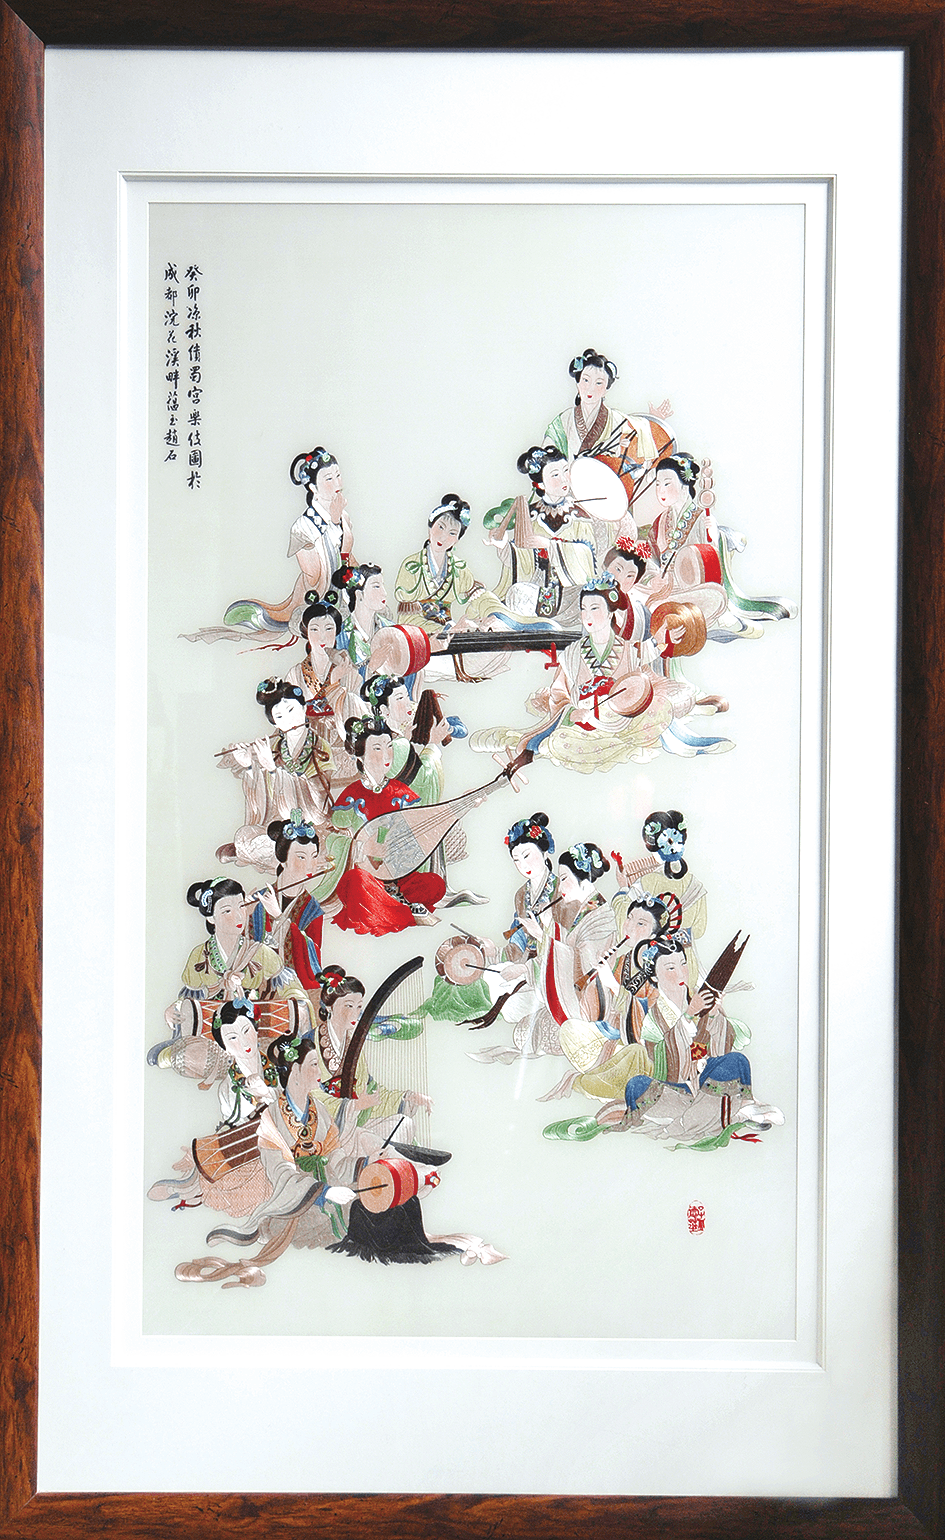 癸卯凉秋绩蜀宫樂伎圖於
成都浣花溪畔蕴玉趙石